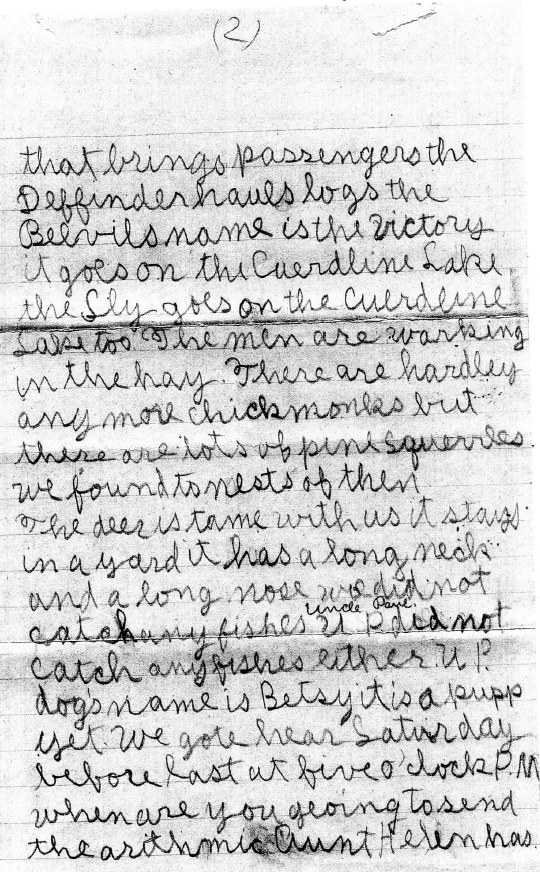 (2)
that brings passengers the
Deffinder hauls logs the
Belvils name is the Victory
it goes on the Cuerdline Lake
the Sly goes on the Cuerdline
Lake too The men are warking
in the hay. There are hardley
any more chickmonks but
there are lots of pine squerrles.
we found to nests of then
The deer is tame with us it stays
in a yard it has a long neck
and a long nose we did not
Uncle
catch any fishes U P. did not
catch any fishes either U P.
dog's name is Betsy it is a pupp
yet. We gote hear Saturday
before last at five o'clock P.M
when are you geoing to send
the arithmic Aunt Helen has